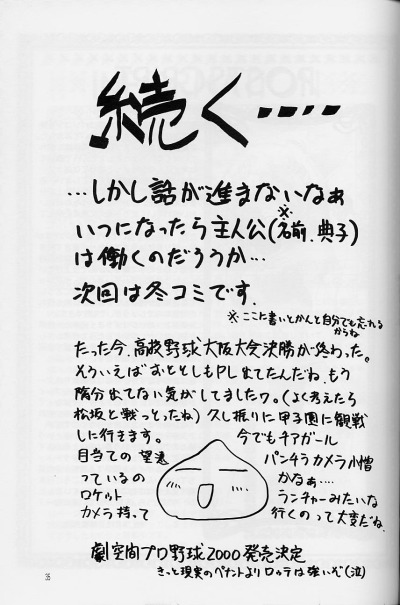 続く‥‥
…しかし話が進まないなぁ
いつになったら主人公(※名前.典子)
は働くのだろうか…
次回は冬コミです.
※ここに書いとかんと自分でも忘れる
からね
たった今、高校野球大阪大会決勝が終わった。
そういえばおととしもPL出てたんだね.もう
随分出てない気がしてましたワ。(よく考えたら
松坂と戦っとったね)久し振りに甲子園に観戦
しに行きます。
目当ての
っているの
ロケット
カメラ持って
今でもチアガール
パンチラカメラ小僧
かなぁ‥‥
ランチャーみたいな
行くのって大変だね.
劇空間プロ野球2000発売決定
きっと現実のペナントよりロッテは強いぞ(泣)
35